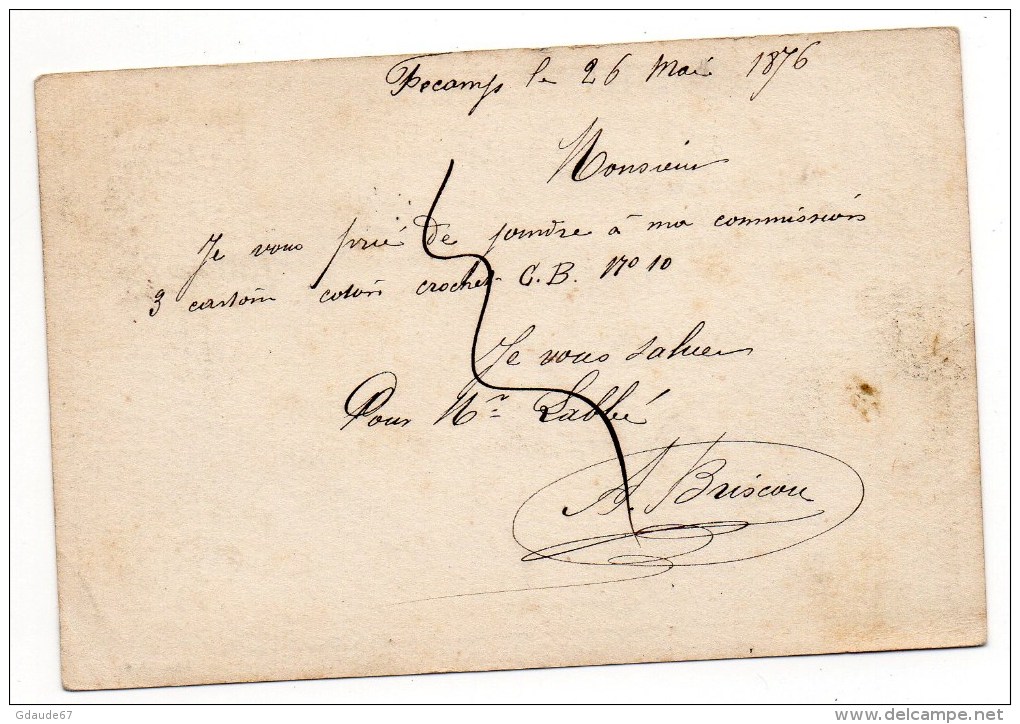 Fecamp le 26 Mai 1876
Monsieur
Je vous prie de joindre à ma commission
3 carton coton crochet C.B. 170 10
Je vous salue
Pour Mr Labbé
A. Briscou
Gdaude67
www.delcampe.net